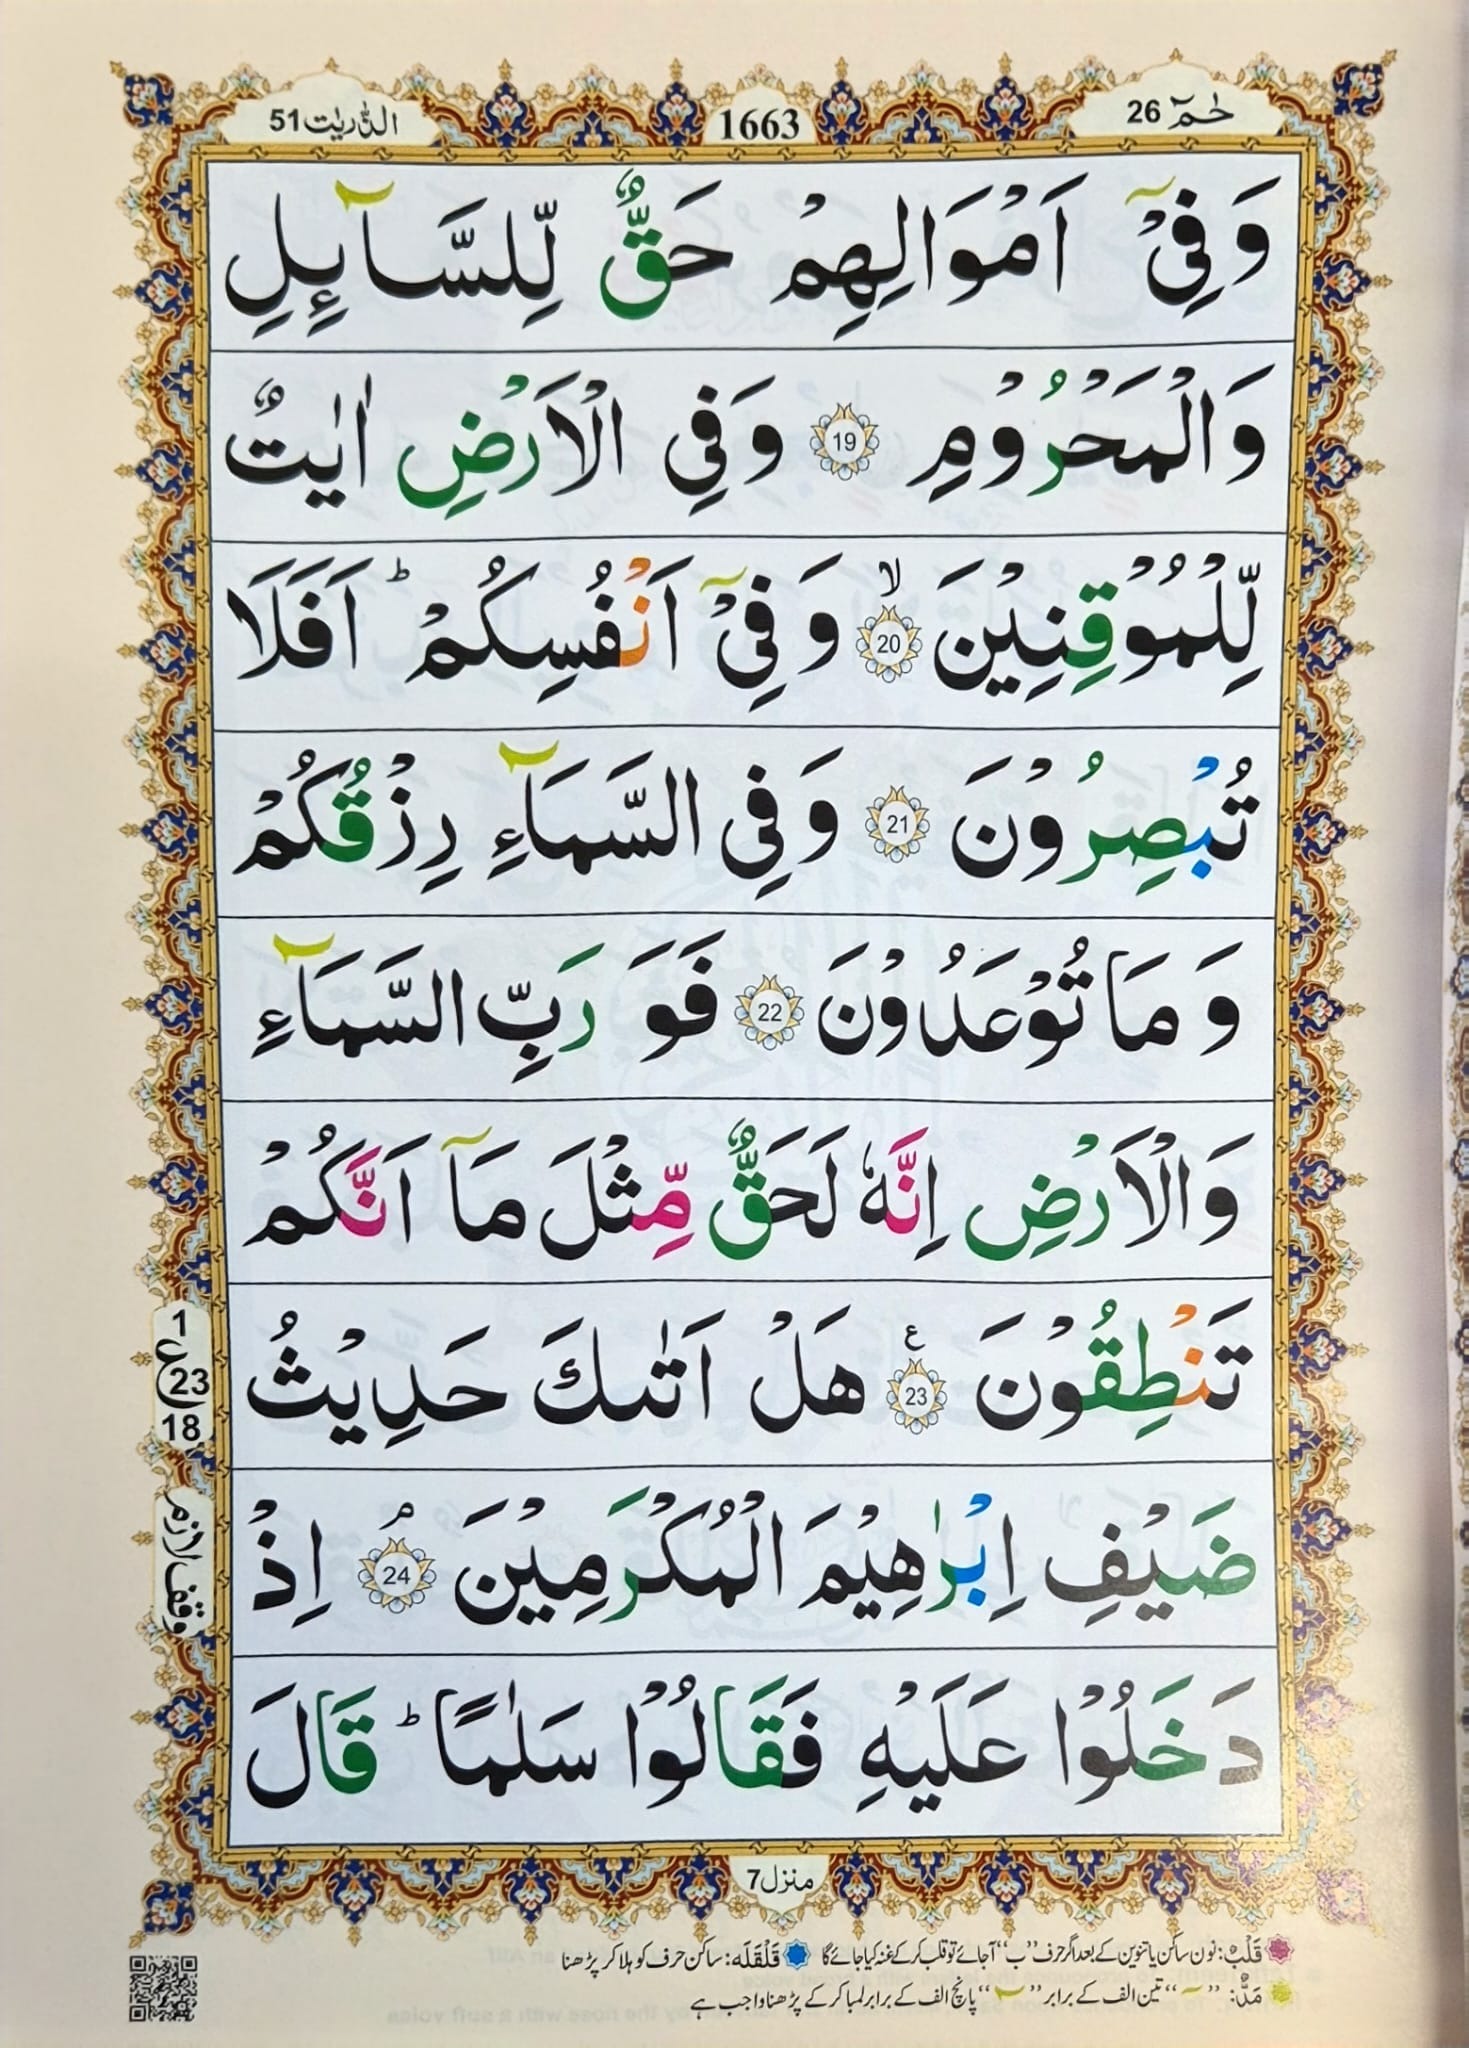 الذّٰریٰت 51
1663
حٰمٓ 26
وَفِیْۤ اَمْوَالِهِمْ حَقٌّ لِّلسَّآىِٕلِ
وَالْمَحْرُوْمِ 19 وَفِی الْاَرْضِ اٰیٰتٌ
لِّلْمُوْقِنِیْنَ ۙ 20 وَفِیْۤ اَنْفُسِكُمْ ؕ اَفَلَا
تُبْصِرُوْنَ 21 وَفِی السَّمَآءِ رِزْقُكُمْ
وَمَا تُوْعَدُوْنَ 22 فَوَرَبِّ السَّمَآءِ
وَالْاَرْضِ اِنَّهٗ لَحَقٌّ مِّثْلَ مَاۤ اَنَّكُمْ
تَنْطِقُوْنَ 23 ع هَلْ اَتٰىكَ حَدِیْثُ
1
ع 23
18
ضَیْفِ اِبْرٰهِیْمَ الْمُكْرَمِیْنَ ۘ 24 اِذْ
وقف لازم
دَخَلُوْا عَلَیْهِ فَقَالُوْا سَلٰمًا ؕ قَالَ
منزل 7
قَلْبْ: نون ساکن یا تنوین کے بعد اگر حرف "ب" آجائے تو قلب کر کے غنہ کیا جائے گا قَلْقَلَه: ساکن حرف کو ہلا کر پڑھنا
مَدّ: "ـۤ" تین الف کے برابر "ـٓ" پانچ الف کے برابر لمبا کر کے پڑھنا واجب ہے